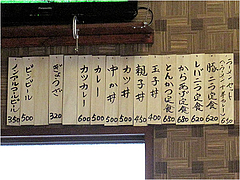 豚ニラ定食 620
レバニラ定食 620
からあげ定食 680
とんかつ定食 680
玉子丼 400
親子丼 450
カツ丼 500
中か丼 500
カレー 500
カツカレー 600
ぎょうざ 320
ビンビール 500
ノンアルコールビール 350